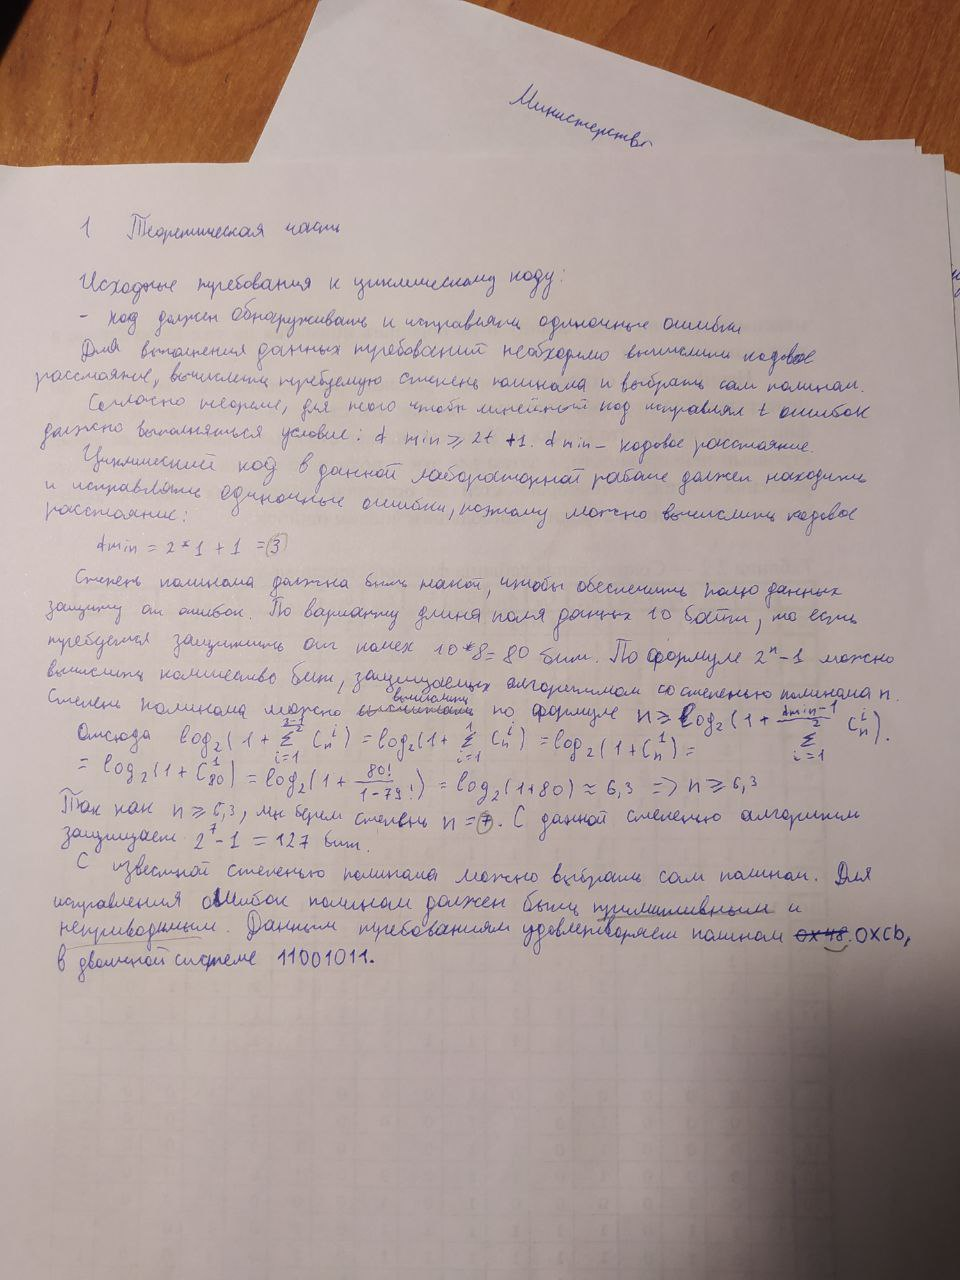 Министерство
1 Теоретическая часть
Исходные требования к циклическому коду:
- код должен обнаруживать и исправлять одиночные ошибки
Для выполнения данных требований необходимо вычислить кодовое
расстояние, вычислить требуемую степень полинома и выбрать сам полином.
Согласно теореме, для того чтобы линейный код исправлял t ошибок
должно выполняться условие: d min ≥ 2t + 1. d min - кодовое расстояние.
Циклический код в данной лабораторной работе должен находить
и исправлять одиночные ошибки, поэтому можно вычислить кодовое
расстояние:
dmin = 2*1 + 1 = 3
Степень полинома должна быть такой, чтобы обеспечить полю данных
защиту от ошибок. По варианту длина поля данных 10 байт, то есть
требуется защитить от помех 10*8 = 80 бит. По формуле 2^n - 1 можно
вычислить количество бит, защищаемых алгоритмом со степенью полинома n.
Степень полинома можно вычислить по формуле n ≥ log2(1 + Σ_{i=1}^{(dmin-1)/2} C_n^i).
Отсюда log2(1 + Σ_{i=1}^{(3-1)/2} C_n^i) = log2(1 + Σ_{i=1}^{1} C_n^i) = log2(1 + C_n^1) =
= log2(1 + C_80^1) = log2(1 + 80!/(1-79!)) = log2(1+80) ≈ 6,3 => n ≥ 6,3
Так как n ≥ 6,3, мы берем степень n = 7. С данной степенью алгоритм
защищает 2^7 - 1 = 127 бит.
С известной степенью полинома можно выбрать сам полином. Для
исправления ошибок полином должен быть примитивным и
неприводимым. Данным требованиям удовлетворяет полином 0x48. 0xCb,
в двоичной системе 11001011.